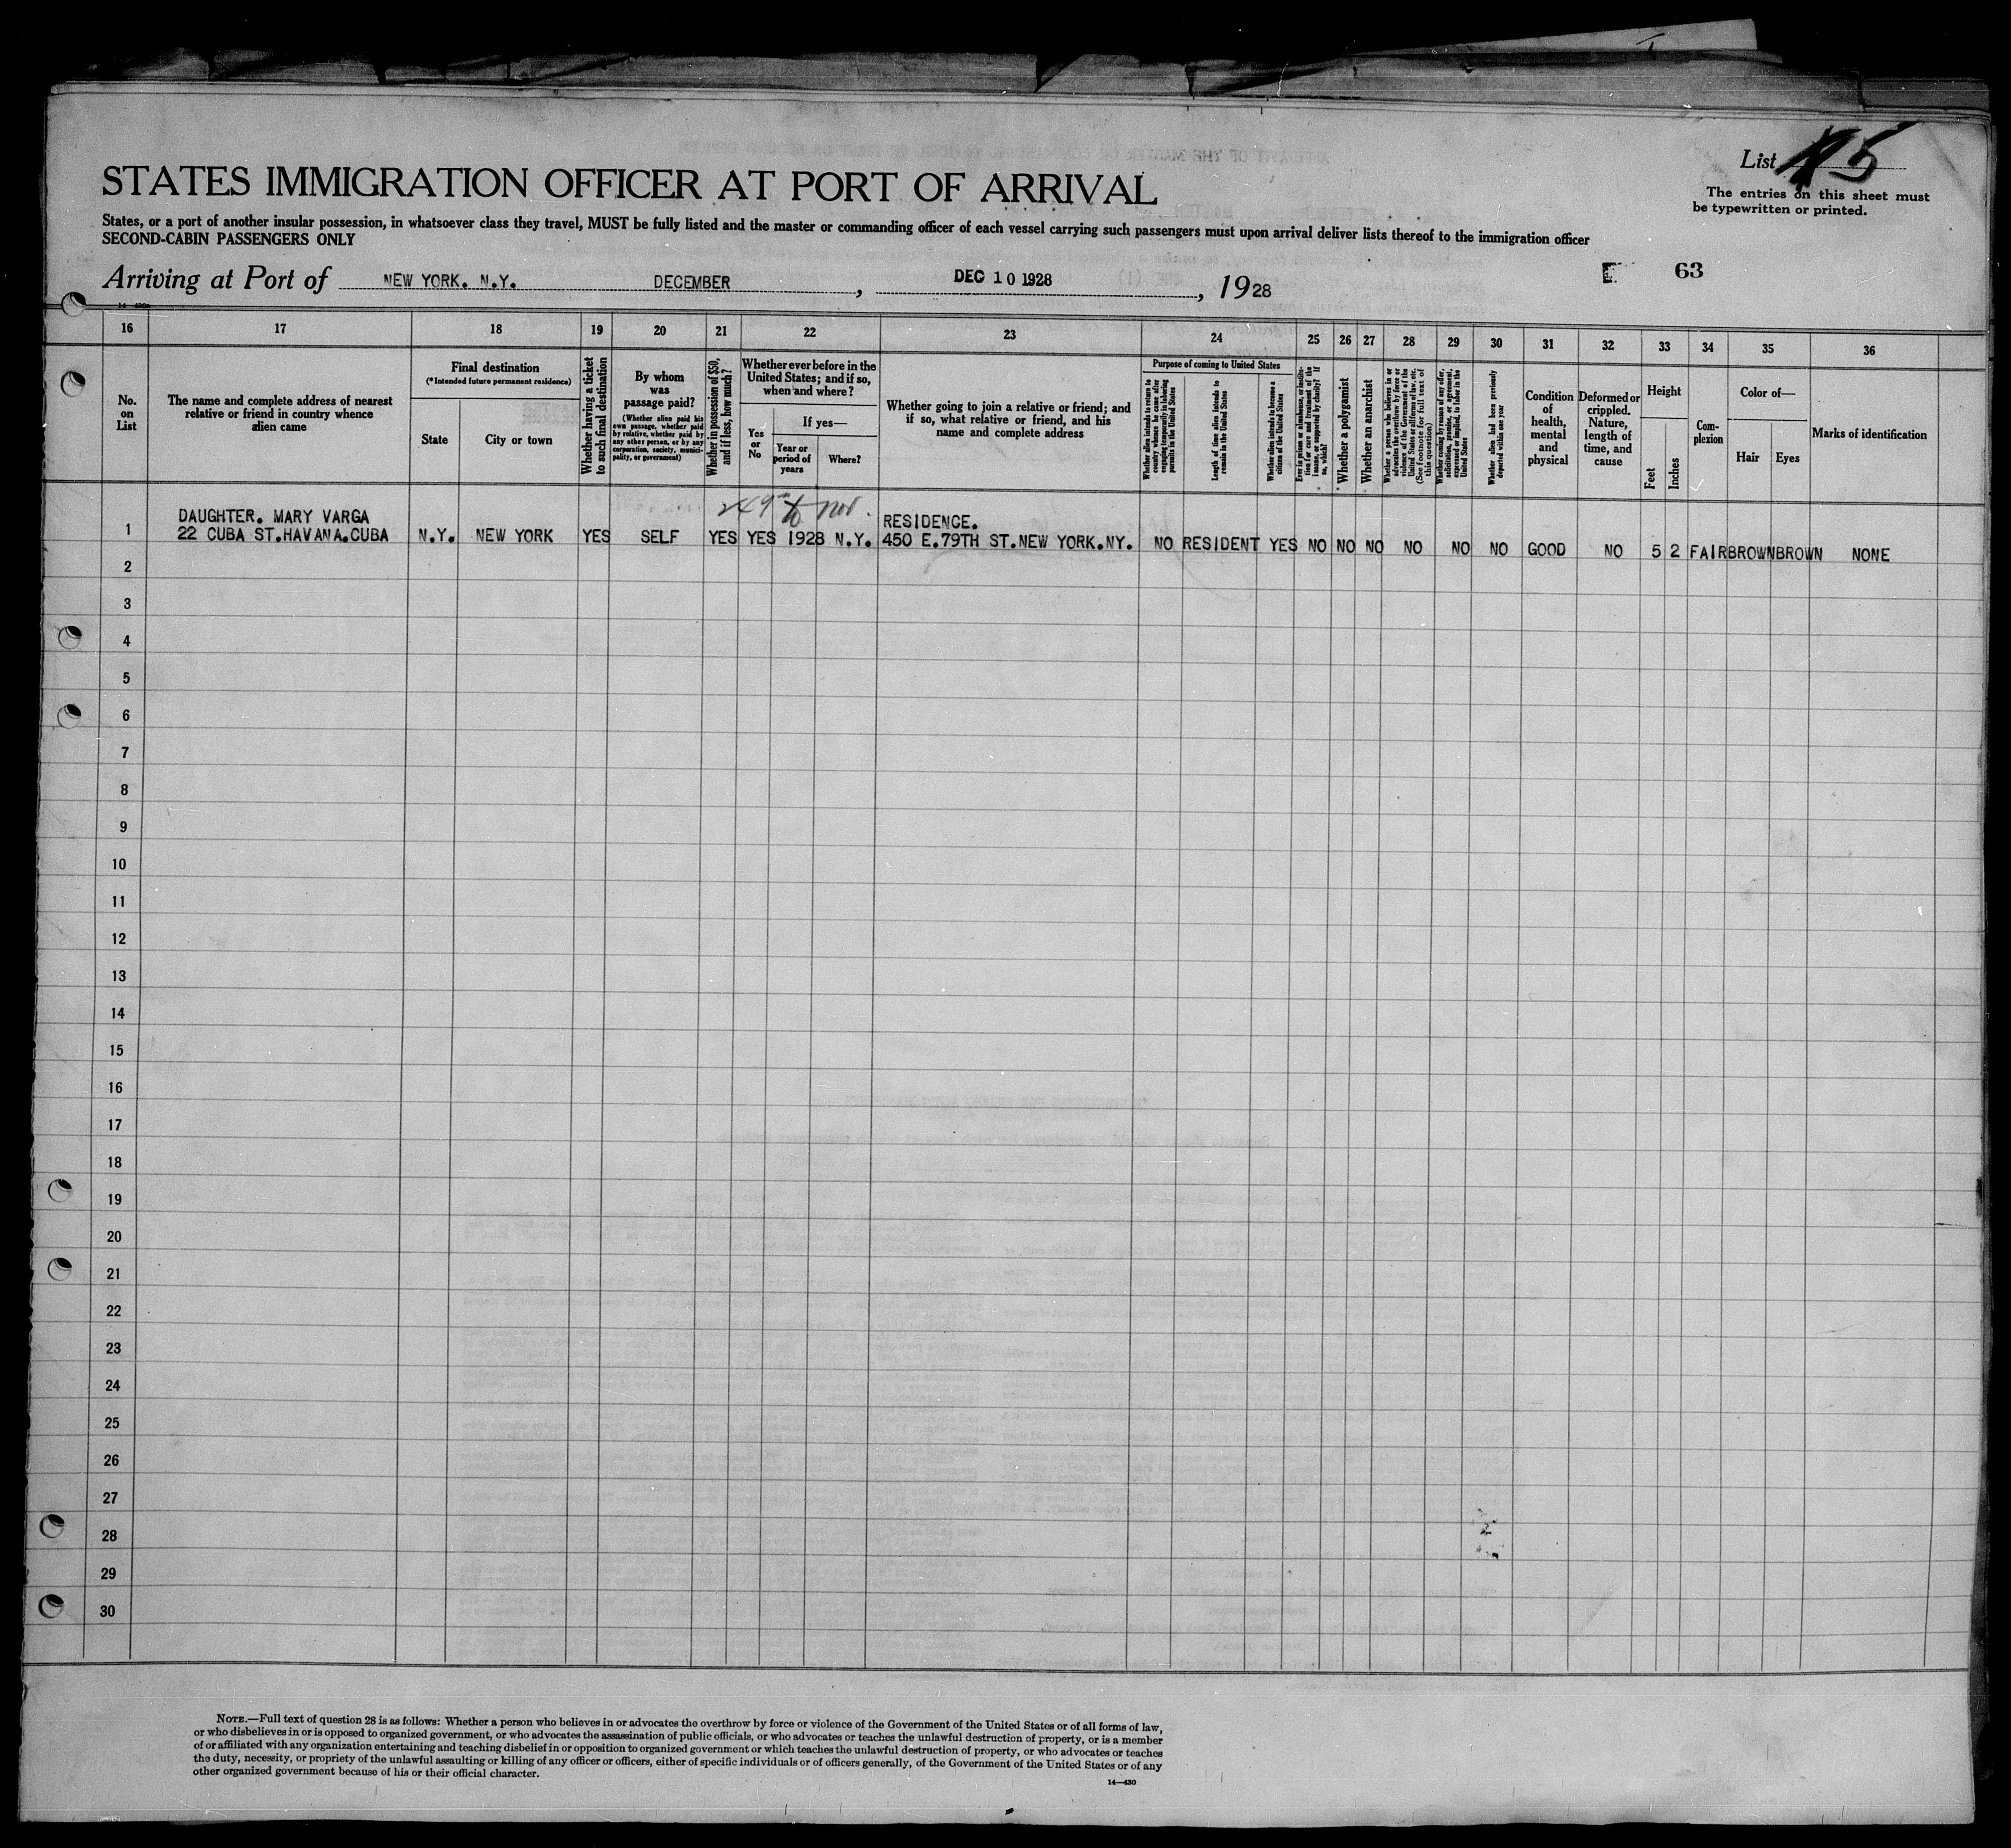 List 5
The entries on this sheet must
be typewritten or printed.
STATES IMMIGRATION OFFICER AT PORT OF ARRIVAL
States, or a port of another insular possession, in whatsoever class they travel, MUST be fully listed and the master or commanding officer of each vessel carrying such passengers must upon arrival deliver lists thereof to the immigration officer
SECOND-CABIN PASSENGERS ONLY
Arriving at Port of NEW YORK. N.Y. DECEMBER, DEC 10 1928, 1928
63
16 17 18 19 20 21 22 23 24 25 26 27 28 29 30 31 32 33 34 35 36
No.
on
List
The name and complete address of nearest
relative or friend in country whence
alien came
Final destination
(*Intended future permanent residence)
State
City or town
Whether having a ticket
to such final destination
By whom
was
passage paid?
(Whether alien paid his
own passage, whether paid
by relative, whether paid by
any other person, or by any
corporation, society, munici-
pality, or government)
Whether in possession of $50,
and if less, how much?
Whether ever before in the
United States; and if so,
when and where?
Yes
or
No
If yes—
Year or
period of
years
Where?
Whether going to join a relative or friend; and
if so, what relative or friend, and his
name and complete address
Purpose of coming to United States
Whether alien intends to return to
country whence he came after
engaging temporarily in laboring
pursuits in the United States
Length of time alien intends to
remain in the United States
Whether alien intends to become a
citizen of the United States
Ever in prison or almshouse, or institu-
tion for care and treatment of the
insane, or supported by charity? If
so, which?
Whether a polygamist
Whether an anarchist
Whether a person who believes in or
advocates the overthrow by force or
violence of the Government of the
United States or all forms of law, etc.
(See footnote for full text of
this question)
Whether coming by reason of any offer,
solicitation, promise, or agreement,
expressed or implied, to labor in the
United States
Whether alien had been previously
deported within one year
Condition
of
health,
mental
and
physical
Deformed or
crippled.
Nature,
length of
time, and
cause
Height
Feet
Inches
Com-
plexion
Color of—
Hair
Eyes
Marks of identification
DAUGHTER. MARY VARGA
RESIDENCE.
1 22 CUBA ST.HAVANA.CUBA N.Y. NEW YORK YES SELF YES YES 1928 N.Y. 450 E.79TH ST.NEW YORK.NY. NO RESIDENT YES NO NO NO NO NO NO GOOD NO 5 2 FAIR BROWN BROWN NONE
2
3
4
5
6
7
8
9
10
11
12
13
14
15
16
17
18
19
20
21
22
23
24
25
26
27
28
29
30
NOTE.—Full text of question 28 is as follows: Whether a person who believes in or advocates the overthrow by force or violence of the Government of the United States or of all forms of law,
or who disbelieves in or is opposed to organized government, or who advocates the assassination of public officials, or who advocates or teaches the unlawful destruction of property, or is a member
of or affiliated with any organization entertaining and teaching disbelief in or opposition to organized government or which teaches the unlawful destruction of property, or who advocates or teaches
the duty, necessity, or propriety of the unlawful assaulting or killing of any officer or officers, either of specific individuals or of officers generally, of the Government of the United States or of any
other organized government because of his or their official character.
14—430